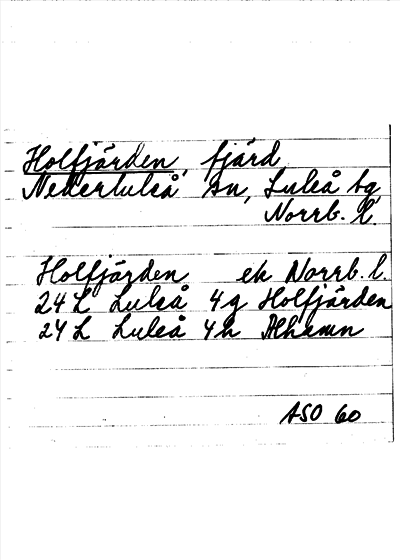 Holfjärden, fjärd
Nederluleå sn, Luleå bg,
Norrb. l.
Holfjärden ek Norrb. l.
24 L Luleå 4g Holfjärden
24 L Luleå 4h
ASO 60